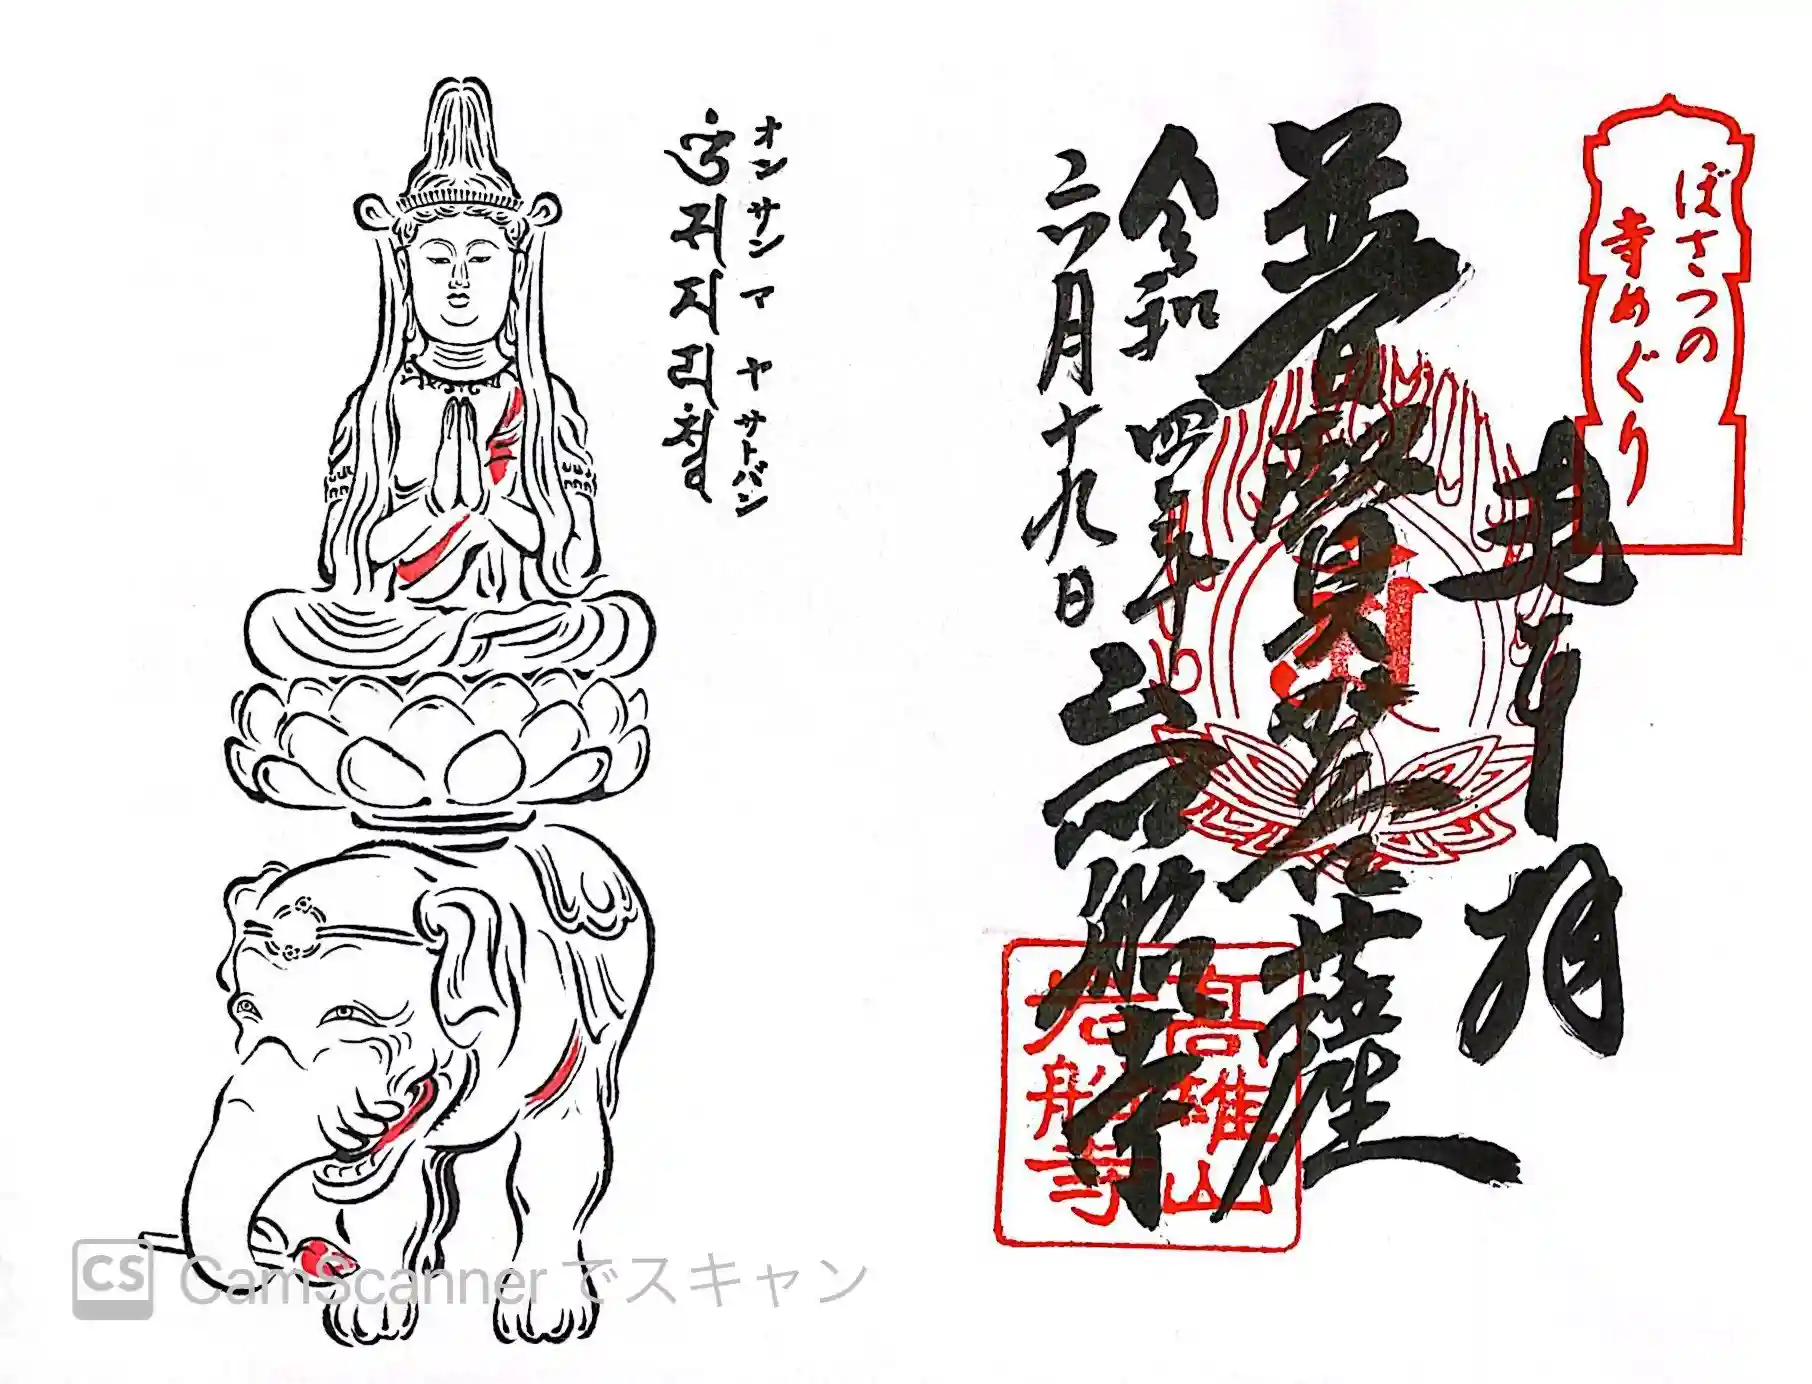 ぼさつの
寺めぐり
奉拝
普賢菩薩
令和四年
六月十九日
岩船寺
高雄山
岩船寺
オン サン マ ヤ サトバン
CS CamScanner でスキャン